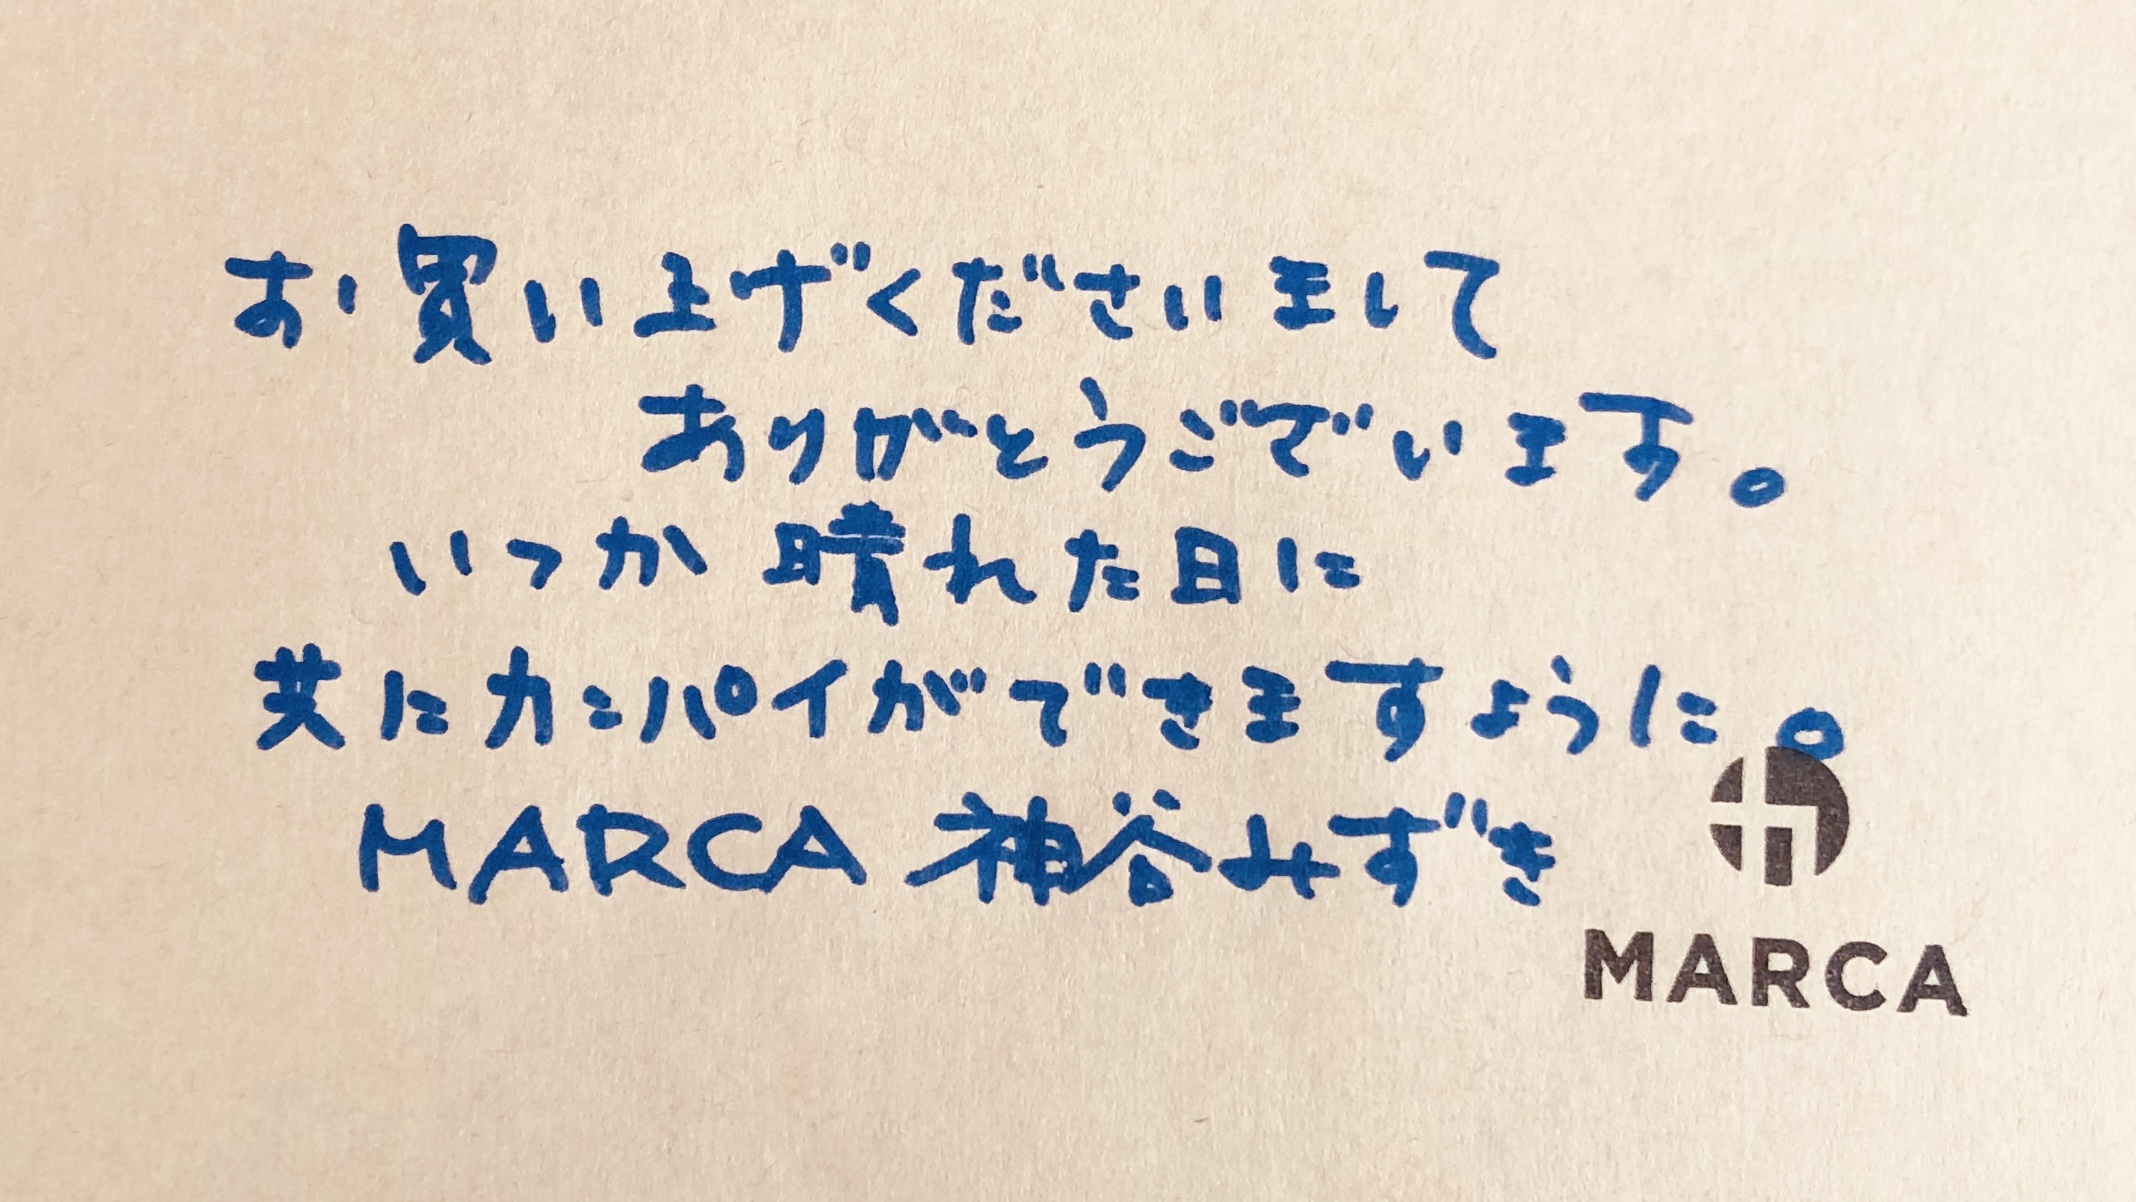 お買い上げくださいまして
ありがとうございます。
いつか晴れた日に
共にカンパイができますように。
MARCA 神谷みずき
MARCA